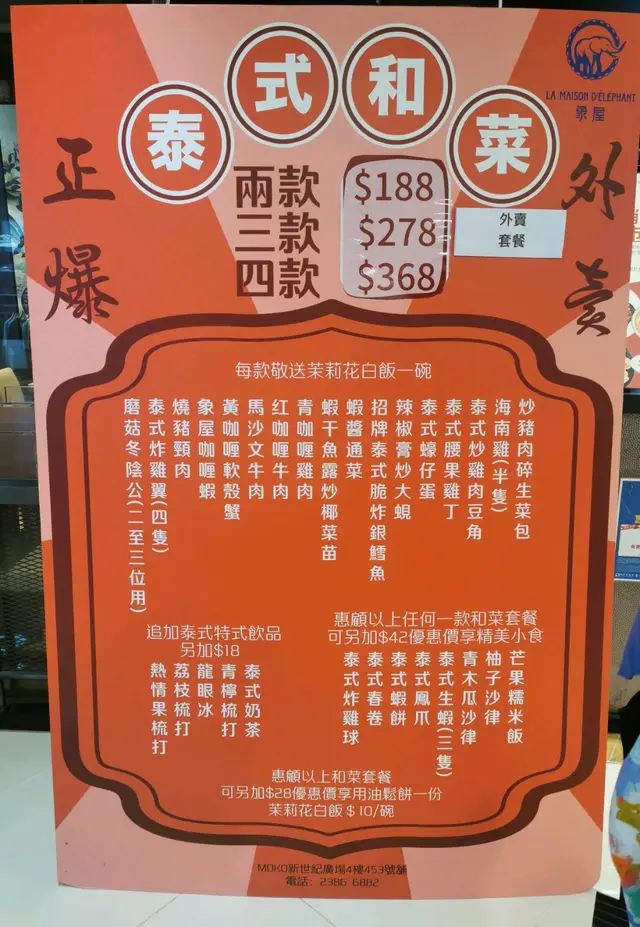 泰式和菜
LA MAISON D'ÉLÉPHANT
象屋
正爆
外賣
兩款 $188
三款 $278
四款 $368
外賣
套餐
每款敬送茉莉花白飯一碗
炒豬肉碎生菜包
海南雞(半隻)
泰式炒雞肉豆角
泰式腰果雞丁
泰式蠔仔蛋
辣椒膏炒大蜆
招牌泰式脆炸銀鱈魚
蝦醬通菜
蝦干魚露炒椰菜苗
青咖喱雞肉
红咖喱牛肉
馬沙文牛肉
黃咖喱軟殼蟹
象屋咖喱蝦
燒豬頸肉
泰式炸雞翼(四隻)
磨菇冬陰公(二至三位用)
追加泰式特式飲品
另加$18
泰式奶茶
青檸梳打
龍眼冰
荔枝梳打
熱情果梳打
惠顧以上任何一款和菜套餐
可另加$42優惠價享精美小食
芒果糯米飯
柚子沙律
青木瓜沙律
泰式生蝦(三隻)
泰式鳳爪
泰式蝦餅
泰式春卷
泰式炸雞球
惠顧以上和菜套餐
可另加$28優惠價享用油鬆餅一份
茉莉花白飯$10/碗
MOKO新世紀廣場4樓453號舖
電話: 2386 6882